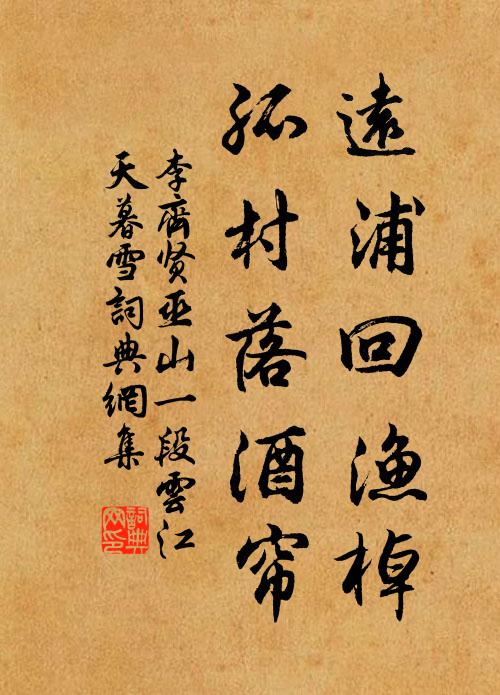 遠浦回漁棹
孤村落酒帘
李齊贤巫山一段雲江
天暮雪詞典網集
詞典